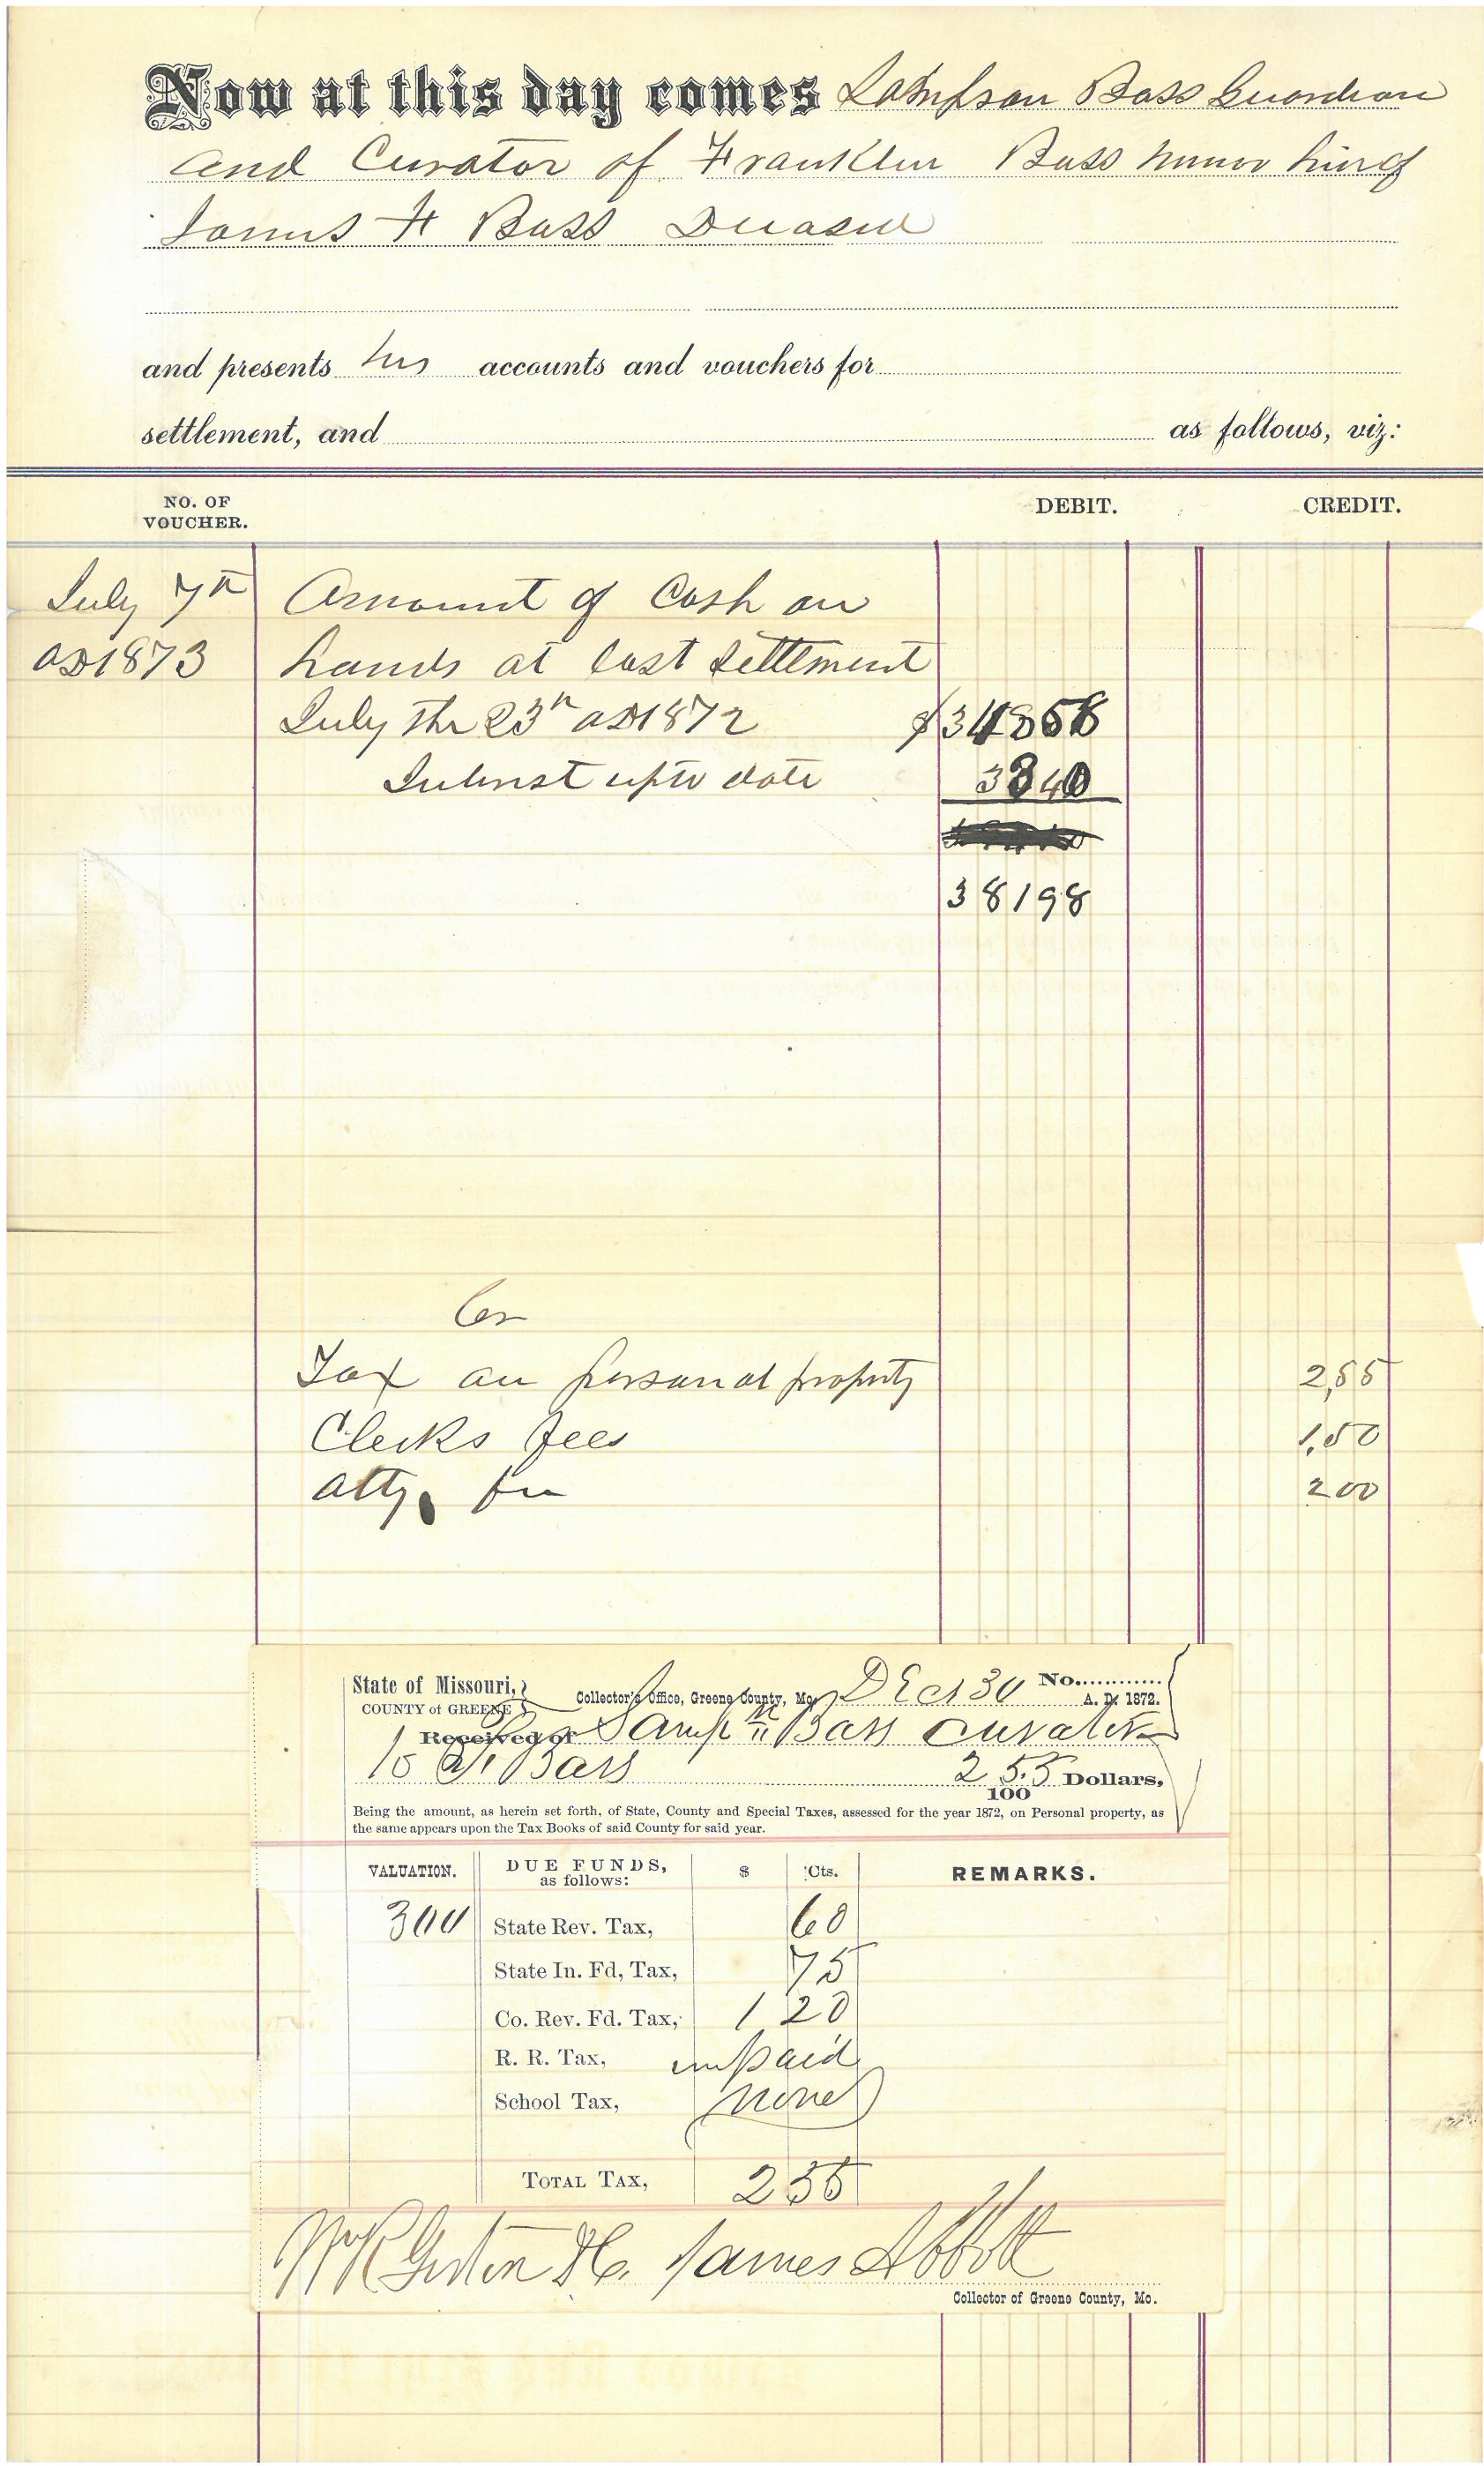 Now at this day comes Sampson Bass Guardian
and Curator of Franklin Bass minor heir of
James F Bass Deceased
and presents his accounts and vouchers for
settlement, and as follows, viz:
NO. OF VOUCHER. DEBIT. CREDIT.
July 7th Amount of Cash on
AD 1873 hands at last settlement
July the 23rd AD 1872 $348 58
Interest upto date 33 40
381 98
Cr
Tax on personal property 2,55
Clerks fees 1,50
Atty. fee 2 00
State of Missouri, COUNTY of GREENE Collector's Office, Greene County, Mo. Dec 30 No. A. D. 1872.
Received of Samp Bass curator
to F. Bass 2 55/100 Dollars,
Being the amount, as herein set forth, of State, County and Special Taxes, assessed for the year 1872, on Personal property, as
the same appears upon the Tax Books of said County for said year.
VALUATION. DUE FUNDS, as follows: $ Cts. REMARKS.
300 State Rev. Tax, 60
State In. Fd, Tax, 75
Co. Rev. Fd. Tax, 1 20
R. R. Tax, unpaid
School Tax, none
TOTAL TAX, 2 55
D.C. James Abbott
Collector of Greene County, Mo.